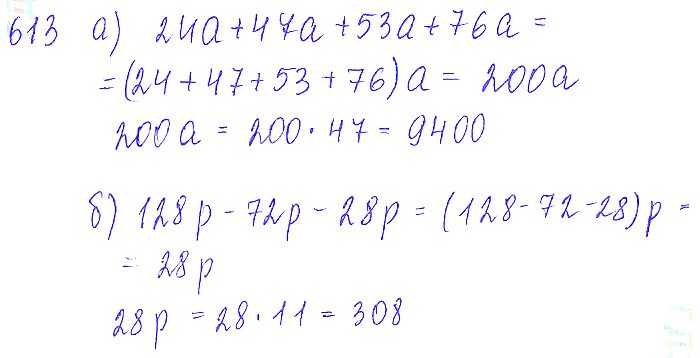 613 а) 24a + 47a + 53a + 76a =
= (24 + 47 + 53 + 76) a = 200a
200a = 200 · 47 = 9400
б) 128p - 72p - 28p = (128 - 72 - 28) p =
= 28p
28p = 28 · 11 = 308